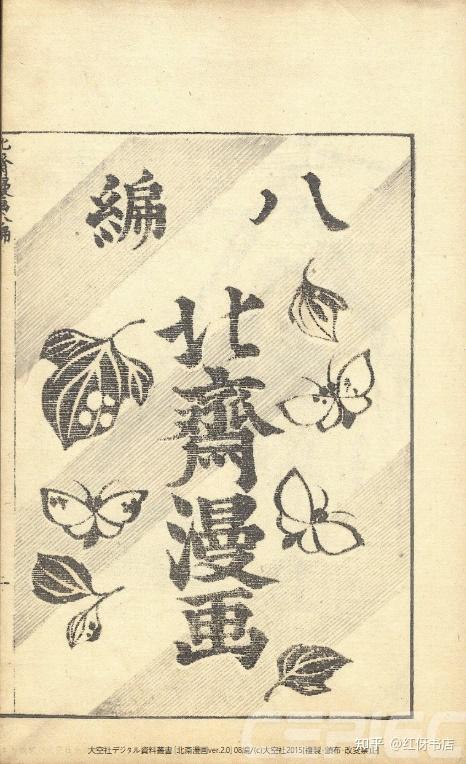 八編
北齋漫画
大空社デジタル資料叢書 [北斎漫画ver.2.0] 08編/(c)大空社2015[複製・頒布・改変禁止]
知乎 @红伢书店